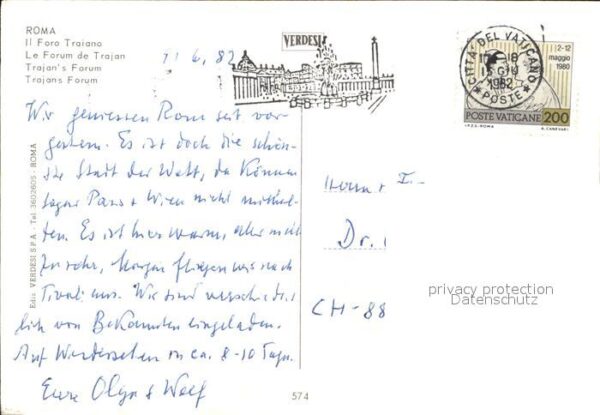 ROMA
Il Foro Traiano
Le Forum de Trajan
Trajan's Forum
Trajans Forum
11.6.82
VERDESI
CITTÀ DEL VATICANO
15 GIU
1982
POSTE
2-12
maggio
1980
POSTE VATICANE 200
I.P.Z.S.-ROMA
Wir geniessen Rom seit vor-
gestern. Es ist doch die schön-
ste Stadt der Welt, da können
sogar Paris + Wien nicht mithal-
ten. Es ist hier warm, aber nicht
zu sehr, Morgen fliegen wir nach
Tivoli aus. Wir sind verschiedent-
lich von Bekannten eingeladen.
Auf Wiedersehen in ca. 8-10 Tagen.
Eure Olga + Wolf
Ediz. VERDESI S.P.A. - Tel. 3602605 - ROMA
Herrn + F.
Dr.
CH-88
privacy protection
Datenschutz
574